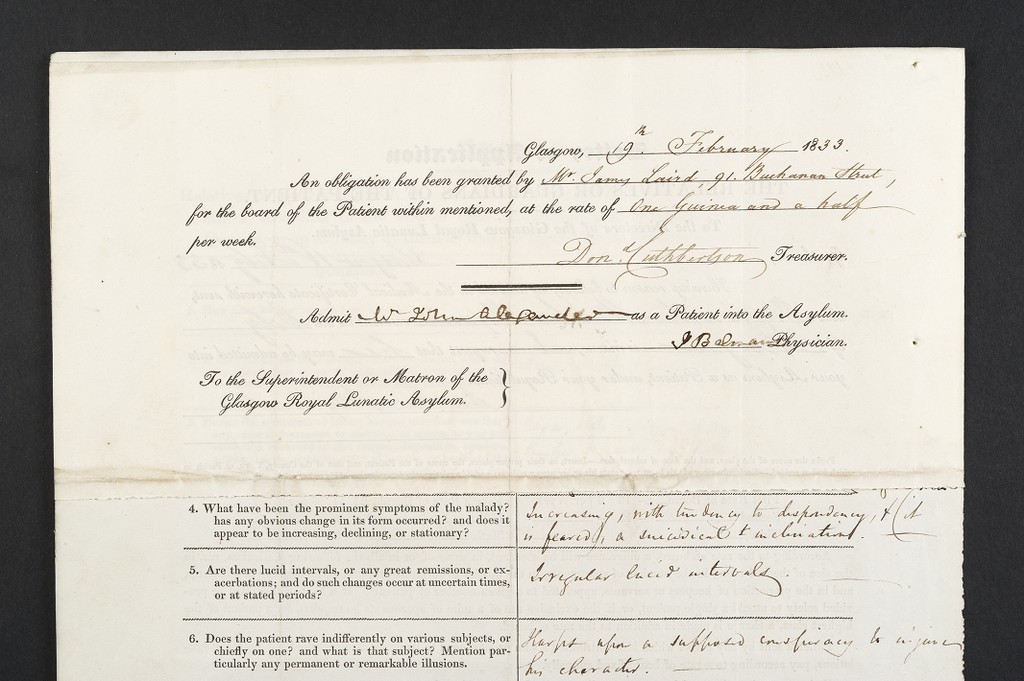 Glasgow, 19th. February 1833.
An obligation has been granted by Mr. James Laird, 91. Buchanan Street,
for the board of the Patient within mentioned, at the rate of One Guinea and a half
per week.
Don. Cuthbertson Treasurer.
Admit Mr John Alexander as a Patient into the Asylum.
Physician.
To the Superintendent or Matron of the
Glasgow Royal Lunatic Asylum.
4. What have been the prominent symptoms of the malady?
has any obvious change in its form occurred? and does it
appear to be increasing, declining, or stationary?
Increasing, with tendency to despondency, & (it
is feared), a suicidical inclination.
5. Are there lucid intervals, or any great remissions, or ex-
acerbations; and do such changes occur at uncertain times,
or at stated periods?
Irregular lucid intervals.
6. Does the patient rave indifferently on various subjects, or
chiefly on one? and what is that subject? Mention par-
ticularly any permanent or remarkable illusions.
Harps upon a supposed conspiracy to injure
his character.